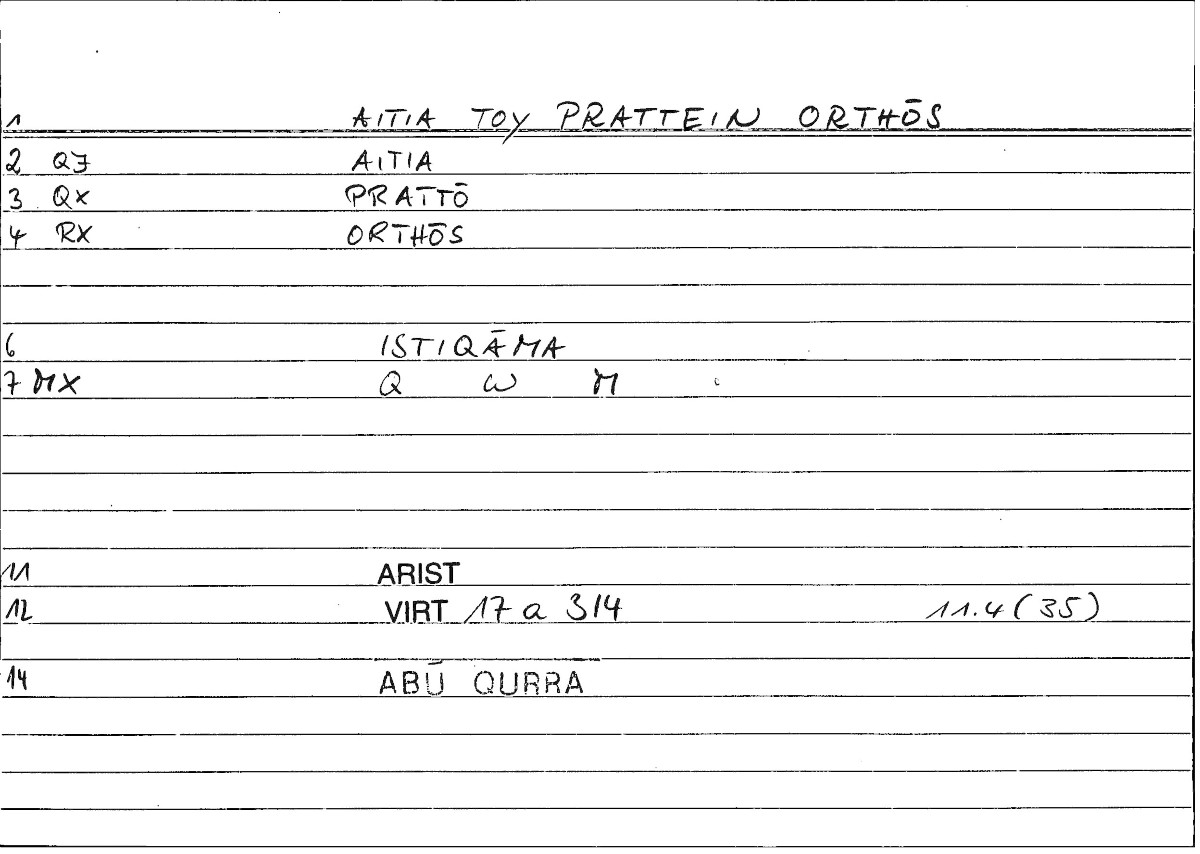 1 AITIA TOY PRATTEIN ORTHŌS
2 QJ AITIA
3 QX PRATTŌ
4 RX ORTHŌS
6 ISTIQĀMA
7 MX Q W M
11 ARIST
12 VIRT 17 a 3/4 11.4 (35)
14 ABŪ QURRA